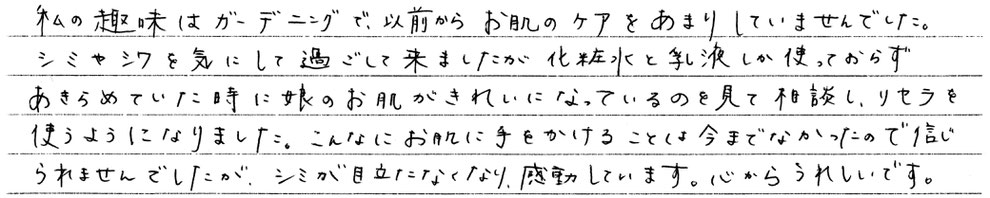 私の趣味はガーデニングで、以前からお肌のケアをあまりしていませんでした。
シミやシワを気にして過ごして来ましたが化粧水と乳液しか使っておらず
あきらめていた時に娘のお肌がきれいになっているのを見て相談し、リセラを
使うようになりました。こんなにお肌に手をかけることは今までなかったので信じ
られませんでしたが、シミが目立たなくなり、感動しています。心からうれしいです。